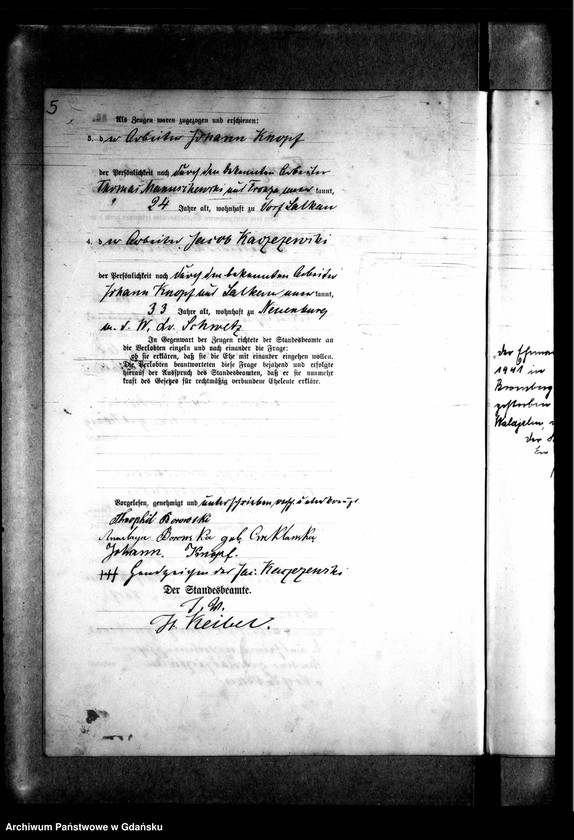 5
Als Zeugen waren zugezogen und erschienen:
3. der Arbeiter Johann Knopf
der Persönlichkeit nach durch den bekannten Arbeiter
Thomas kannt,
24 Jahre alt, wohnhaft zu Dorf Lalkau
4. der Arbeiter Jacob Kaczezewski
der Persönlichkeit nach durch den bekannten Arbeiter
Johann Knopf aus Lalkau kannt,
33 Jahre alt, wohnhaft zu Neuenburg
Schwetz
In Gegenwart der Zeugen richtete der Standesbeamte an
die Verlobten einzeln und nach einander die Frage:
ob sie erklären, daß sie die Ehe mit einander eingehen wollen.
Die Verlobten beantworteten diese Frage bejahend und erfolgte
hierauf der Ausspruch des Standesbeamten, daß er sie nunmehr
kraft des Gesetzes für rechtmäßig verbundene Eheleute erkläre.
Vorgelesen, genehmigt und unterschrieben, resp. unterkreuzt
Theophil Borowski
Borowska geb.
Johann Knopf.
+++ Handzeichen des Jac. Kaczezewski
Der Standesbeamte.
J. V.
Keiber.
der Ehemann
1941 in
Bromberg
gestorben
der
Archiwum Państwowe w Gdańsku